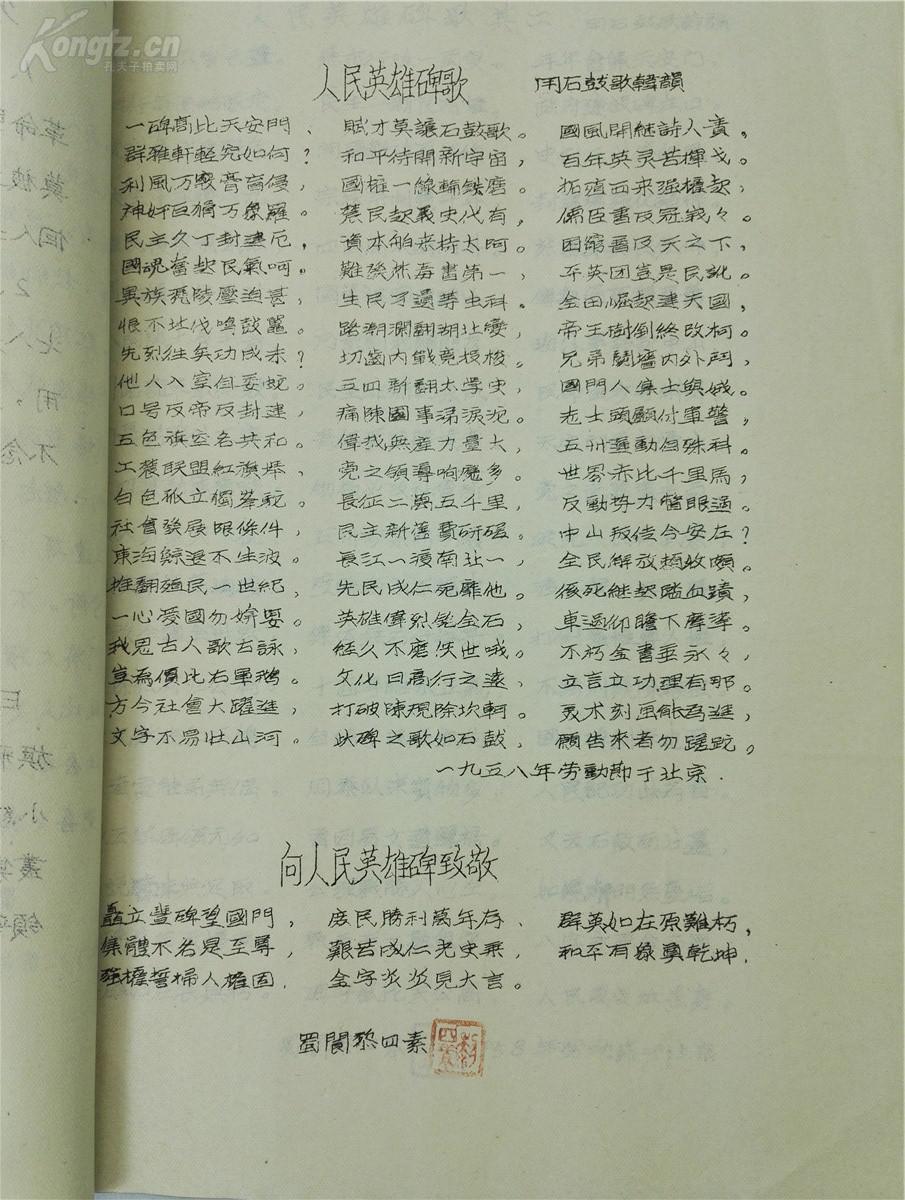 Kongfz.cn
孔夫子拍卖网
人民英雄碑歌 用石鼓歌韓韻
一碑高比天安門、 賦才莫讓石鼓歌。 國風開繼詩人責,
群雅軒輊究如何? 和平待開新宇宙, 百年英灵苦揮戈。
利風万竅膏肓侵, 國權一線輪鉄磨。 拓殖西来强權起,
神奸巨猾万象羅。 農民起義史代有, 儒臣書反冠峩々。
民主久丁封建厄, 資本舶来持太阿。 困窮普及天之下,
國魂奮起民氣呵。 難 書第一, 平英团豈是民訛。
異族憑陵壓迫甚, 生民才過等虫科。 金田崛起建天國,
恨不北伐鳴鼓鼉。 路潮瀾翻湖北變, 帝王樹倒終改柯。
先烈往矣功成未? 切齒内戰竟投梭。 兄弟鬩墻内外鬥,
他人入室自委蛇。 五四新翻太學史, 國門人集士與娥。
口号反帝反封建, 痛陳國事涕淚沱。 志士頭顱付軍警,
五色旗空名共和。 偉哉無產力量大, 五卅運動自殊科。
工農联盟紅旗舉, 党之領導响應多。 世界赤比千里馬,
白色孤立獨峯駝。 長征二萬五千里, 反動势力瞥眼過。
社會發展眼條件, 民主新舊費研磋。 中山叛徒今安在?
東海鯨遁不生波。 長江一渡南北一, 全民解放頼牧頗。
推翻殖民一世紀, 先民成仁死靡他。 後死継起踏血蹟,
一心愛國勿媕娿。 英雄偉烈髡金石, 車過仰瞻下摩挲。
我思古人歌古詠, 經久不磨佚世哦。 不朽金書垂永々,
豈為價比右軍鵝。 文化日高行之遠, 立言立功理有那。
方今社會大躍進, 打破陳規除坎軻。 美术刻画能為進,
文字不易壮山河。 此碑之歌如石鼓, 願告來者勿蹉跎。
一九五八年劳動節于北京.
向人民英雄碑致敬
矗立豐碑望國門, 庶民勝利萬年存、 群英如在原難朽,
集體不名是至尊, 艱苦成仁光史乘, 和平有象奠乾坤.
强權誓掃人權固. 金字炎炎見大言。
蜀閬黎四素